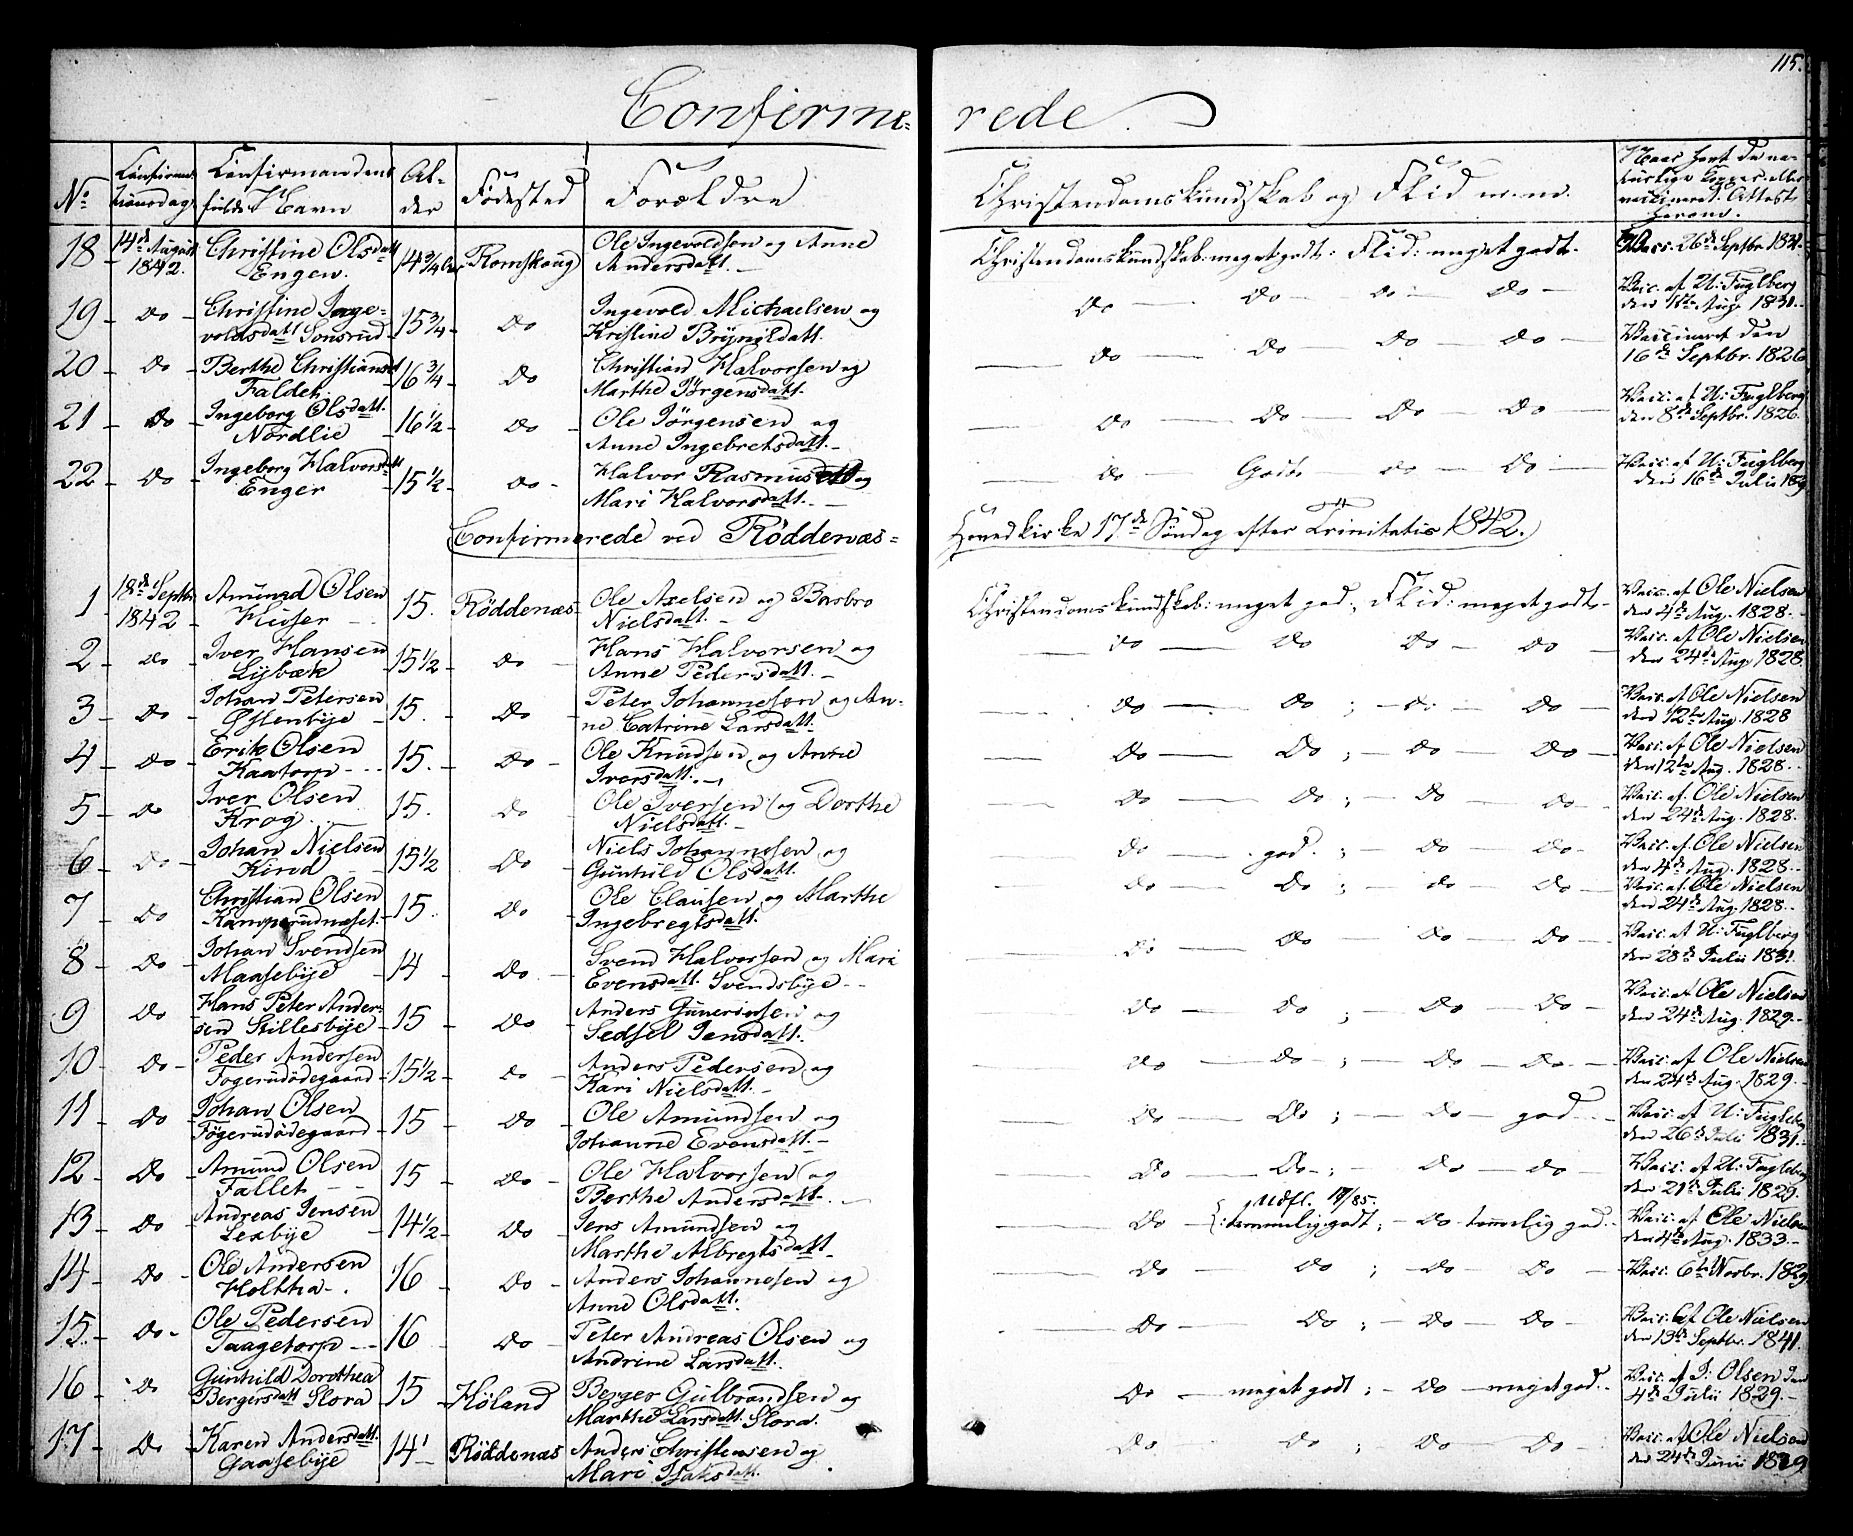 115.
Confirme= rede.
No
Confirma-
tionsdag
Confirmandens
fulde Navn
Al-
der
Födested
Forældre
Christendomskundskab og Flid m.m.
Naar havt de na-
turlige Kopper eller
vaccineret. Attest
herom.
18 14de August 1842. Christine Olsdatt Engen. 14 3/4 Romskoug Ole Ingevoldsen og Anne Andersdatt. Christendomskundskab: meget godt: Flid: meget godt. Vacc. 26de Septbr 1831.
19 do Christine Inge-
voldsdatt Sonsrud 15 3/4 do Ingevold Michaelsen og
Kristine Brynildatt. do do do do Vacc. af U: Fuglberg
den Aug. 1831.
20 do Berthe Christiansd
Faldet. 16 3/4 do Christian Halvorsen og
Marthe Jörgensdatt. do do do do Vaccineret den
16de Septbr. 1826
21 do Ingeborg Olsdatt.
Nordlie 16 1/2 do Ole Jörgensen og
Anne Ingebretsdatt. do do do do Vacc. af U: Fuglberg
den 8de Septbr. 1826.
22 do Ingeborg Halvorsdt
Enger 15 1/2 do Halvor Rasmus og
Mari Halvorsdatt. do Godt. do do Vacc. af U: Fuglberg
den 16de Julii
Confirmerede ved Röddenæs= Hovedkirke 17de Söndag efter Trinitatis 1842.
1 18de Septbr
1842 Amund Olsen
Huser 15. Röddenæs Ole Axelsen og Barbro
Nielsdatt. Christendomskundskab: meget god; Flid: meget godt. Vacc. af Ole Nielsen
den 4de Aug. 1828.
2 do Iver Hansen
Lysbæk 15 1/2 do Hans Halvorsen og
Anne Pedersdatt. do do do do Vacc. af Ole Nielsen
den 24de Aug 1828.
3 do Johan Petersen
Østenbye 15. do Peter Johannesen og An-
ne Catrine Larsdatt. do do ; do do Vacc. af Ole Nielsen
den 12te Aug. 1828
4 do Erik Olsen
Kaatorp 15. do Ole Knudsen og Anne
Iversdatt. do do ; do do Vacc. af Ole Nielsen
den 12te Aug. 1828.
5 do Iver Olsen
Krog 15. do Ole Iversen og Dorthe
Nielsdatt. do do ; do do Vacc. af Ole Nielsen
den 24de Aug. 1828.
6 do Johan Nielsen
Kind 15 1/2 do Niels Johannesen og
Gunhild Olsdatt. do god. ; do do Vacc. af Ole Nielsen
den 4de Aug. 1828.
7 do Christian Olsen
Kamperudnæset. 15. do Ole Clausen og Marthe
Ingebregtsdatt. do do ; do do Vacc. af Ole Nielsen
den 24de Aug. 1828.
8 do Johan Svendsen
Maasebye 14 do Svend Halvorsen og Mari
Evensdatt. Svendsbye. do do do do Vacc. af U: Fuglberg
den 28de Julii 1831.
9 do Hans Peter Ander-
sen Stillesbye 15 do Anders Gunersen og
Sedsel Jensdatt. do do ; do do Vacc. af Ole Nielsen
den 24de Aug. 1829.
10 do Peder Andersen
Fogerudödegaard 15 1/2 do Anders Pedersen og
Kari Nielsdatt. do do ; do do Vacc. af Ole Nielsen
den 24de Aug. 1829.
11 do Johan Olsen
Fögerudödegaard 15 do Ole Amundsen og
Johanne Evensdatt. do do ; do god Vacc. af U: Fuglberg
den 26de Julii 1831.
12 do Amund Olsen
Fallet 15 do Ole Halvorsen og
Berthe Andersdatt. do do ; do do Vacc. af U: Fuglberg
den 21de Julii 1829.
Udfl. /85.
13 do Andreas Jensen
Lexbye 14 1/2 do Jens Amundsen og
Marthe Albregtsdatt do temmelig godt; do temmelig god. Vacc. af Ole Nielsen
den 4de Aug. 1833.
14 do Ole Andersen
Holtha 16 do Anders Johannesen og
Anne Olsdatt. do do ; do do Vacc. 6te Novbr. 1829
15. do Ole Pedersen
Taagetorp 16 do Peter Andreas Olsen og
Andrine Larsdatt. do do ; do do Vacc. af Ole Nielsen
den 13de Septbr. 1841.
16 do Gunhild Dorothea
Bergersdatt Slora 15 Höland Berger Gulbrandsen og
Marthe Larsdatt. Slora. do meget godt ; do meget god. Vacc. af J. Olsen den
4de Julii 1829.
17 do Karen Andersdatt.
Gaasebye 14 Röddenæs Anders Christensen og
Mari Isaksdatt. do do ; do do Vacc. af Ole Nielsen
den 24de Junii 1829